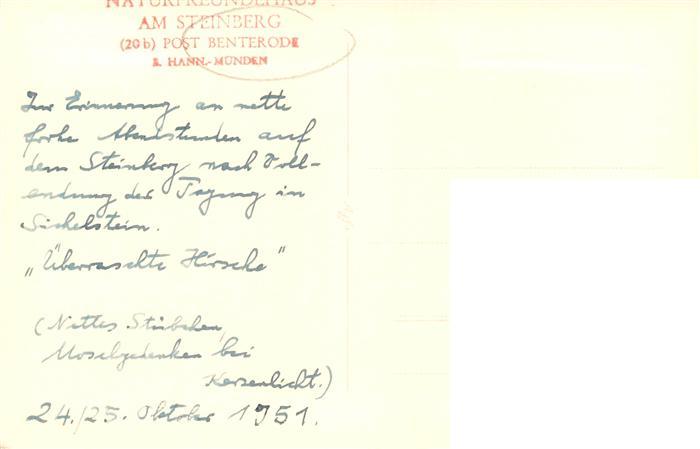 NATURFREUNDEHAUS
AM STEINBERG
(20b) POST BENTERODE
HANN.-MÜNDEN
Zur Erinnerung an nette
frohe Abendstunden auf
dem Steinberg nach Voll-
endung der Tagung in
Sichelstein.
„Überraschte Hirsche"
(Nettes Stübchen,
Moselgedenken bei
Kerzenlicht.)
24./25. Oktober 1951.